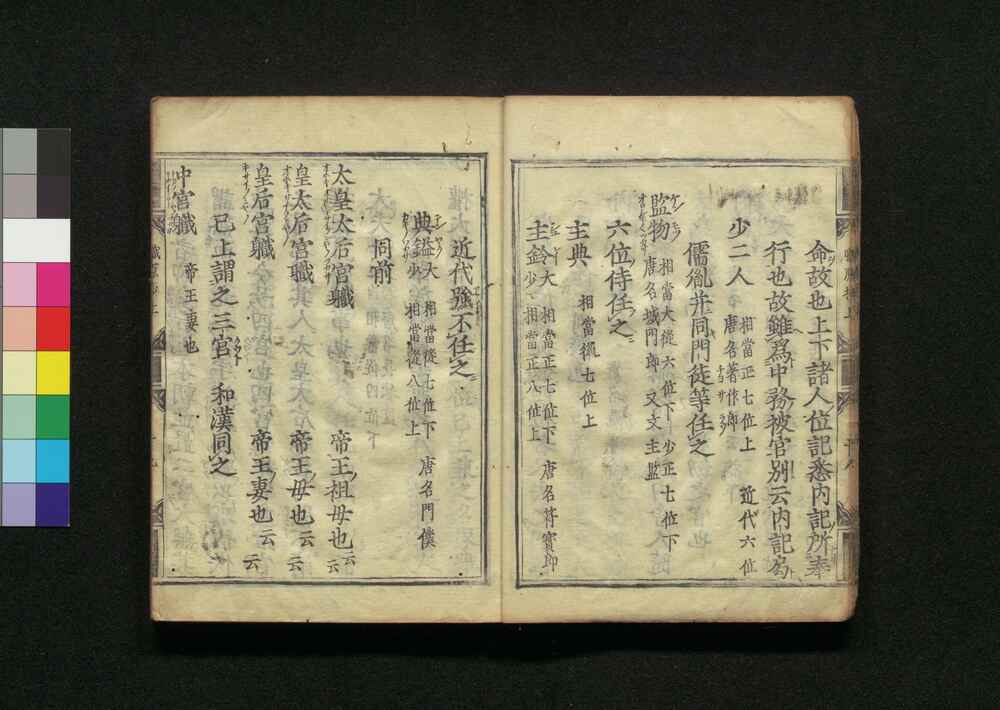 命故也上下諸人位記悉内記所奉
行也故雖爲中務被官別云内記勾
少二人 相當正七位上 近代六位
唐名著作郎
儒胤并同門徒等任之
監物 相當大從六位下少正七位下
唐名城門郎又文主監
六位侍任之
主典 相當從七位上
主鈴 大 相當正七位下 唐名符寶郎
少 相當正八位上
近代強不任之
典鑰 大 相當從七位下 唐名門僕
少 相當從八位上
同前
太皇太后宮職 帝王ノ祖母也云云
皇太后宮職 帝王ノ母也云云
皇后宮職 帝王ノ妻也云云
已上謂之三宮 和漢同之
中宮職 帝王妻也